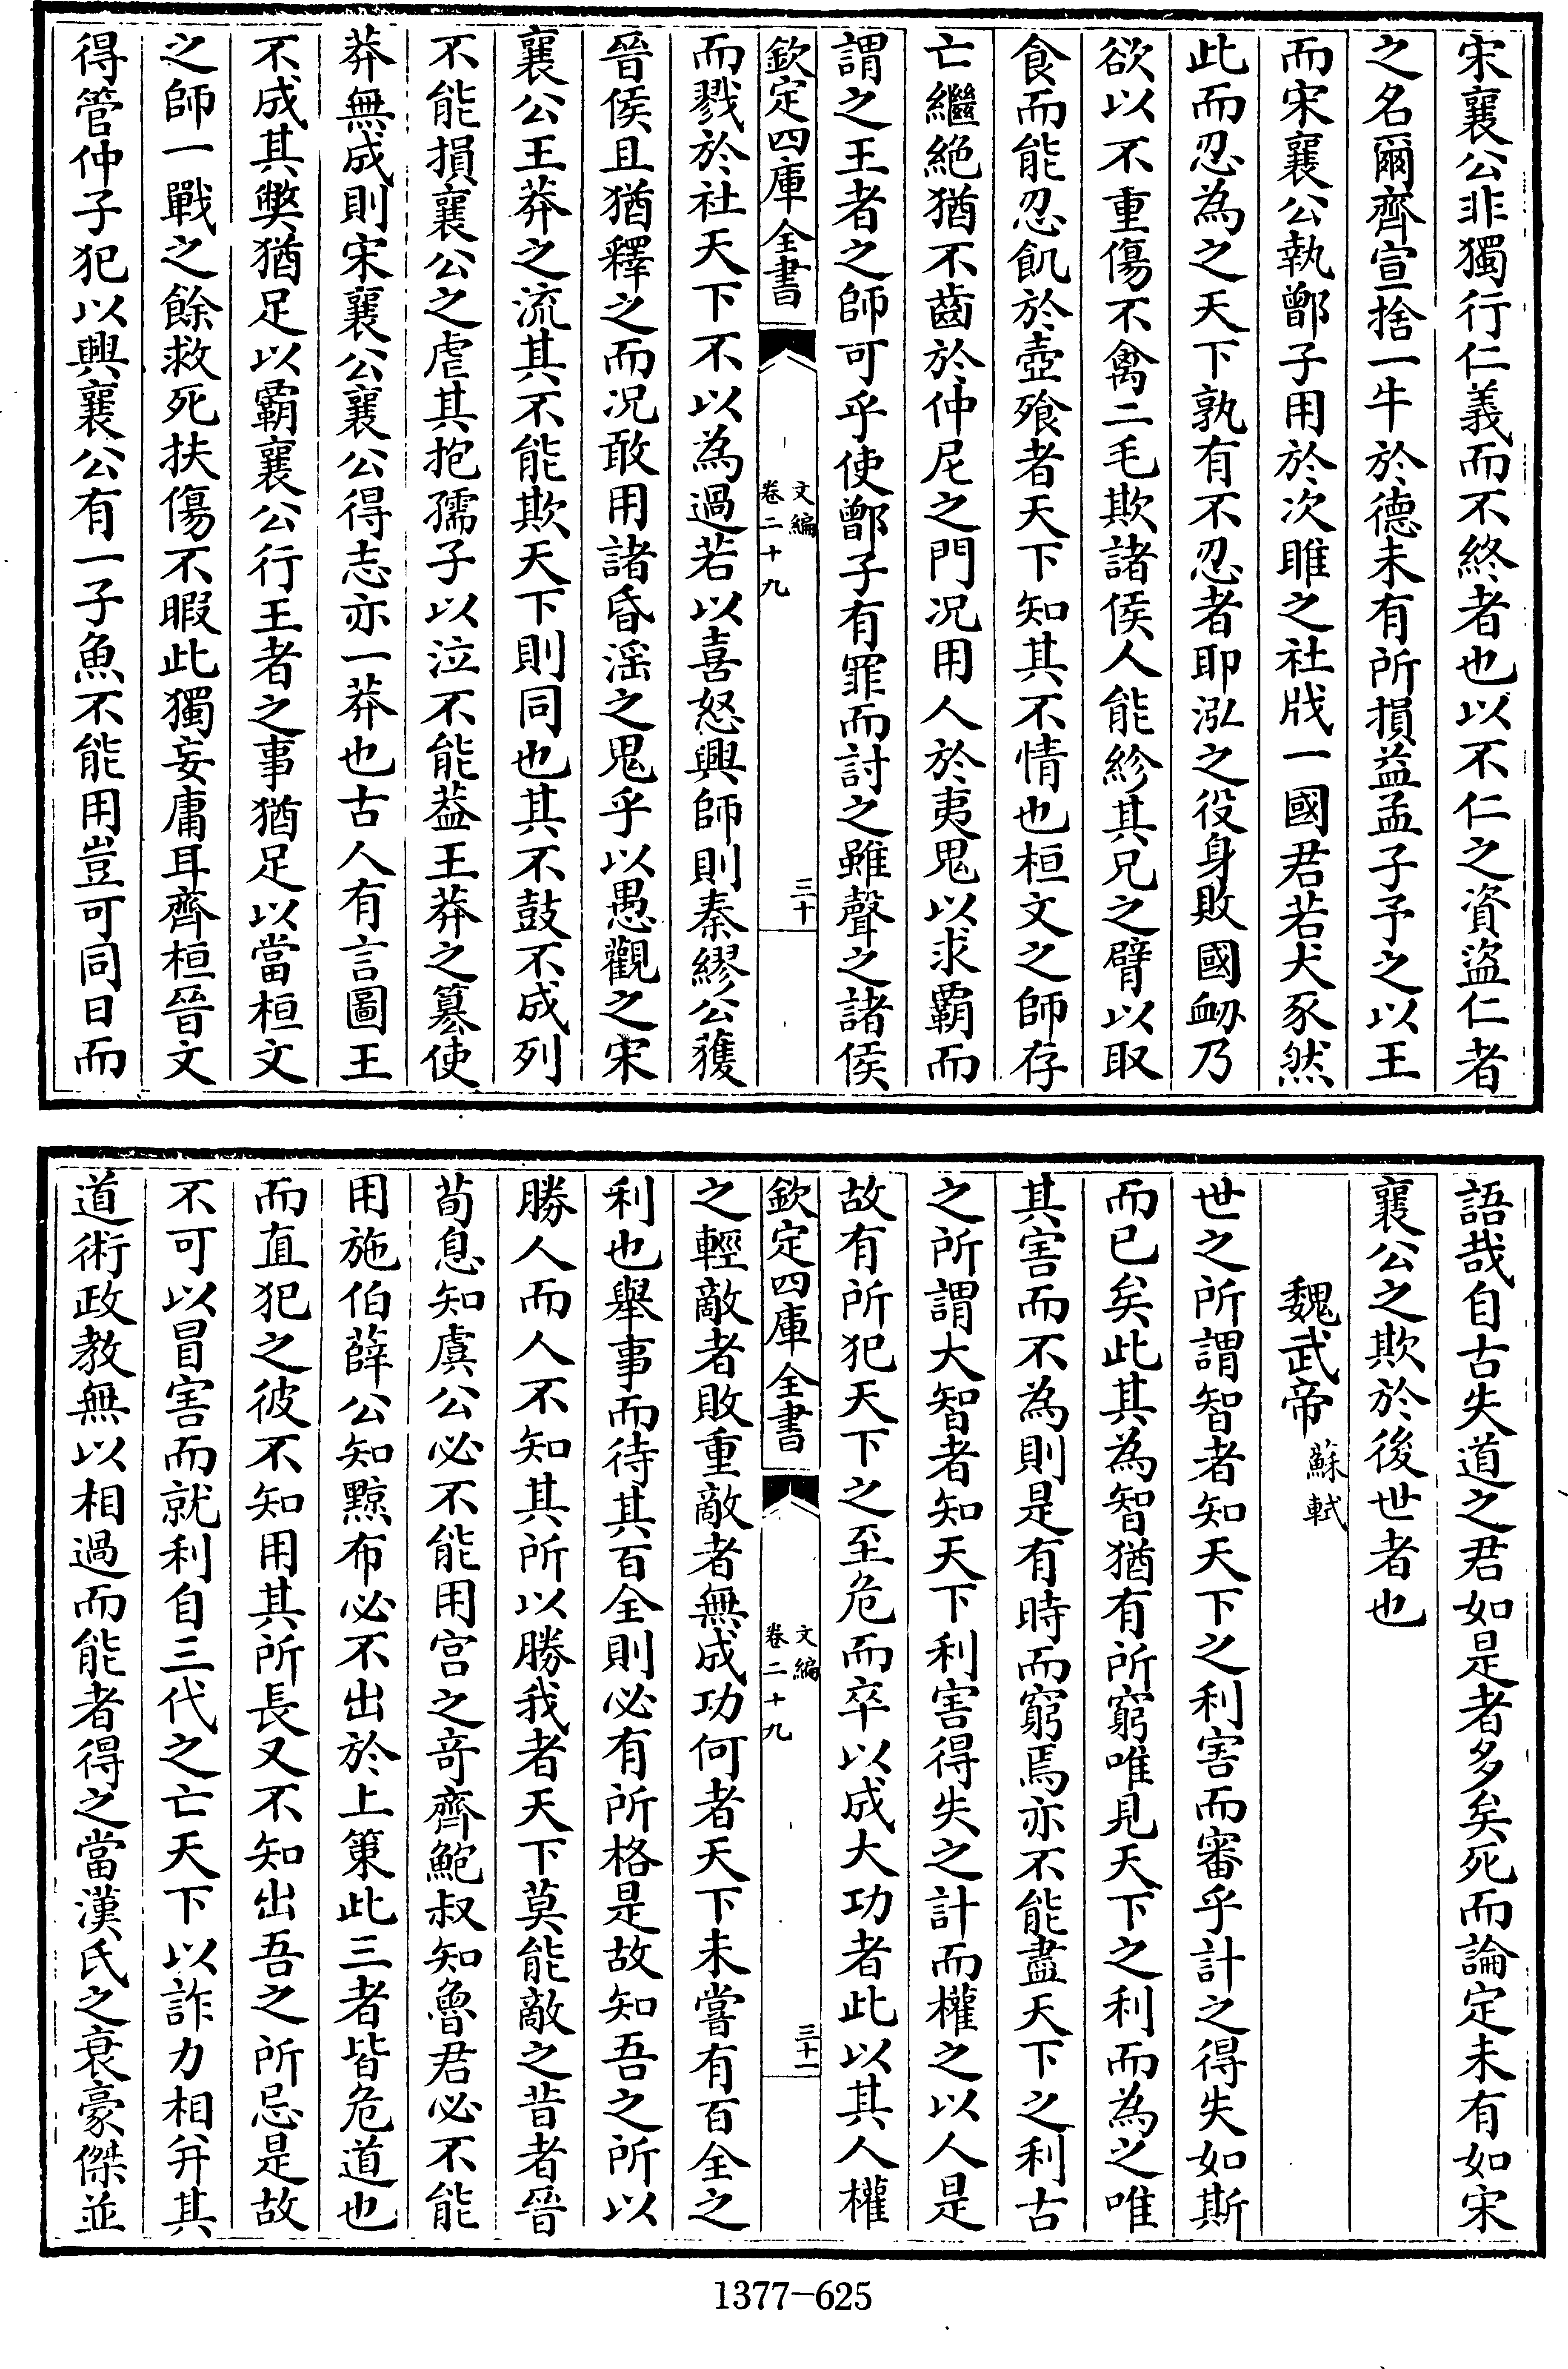 宋襄公非獨行仁義而不終者也以不仁之資盜仁者
之名爾齊宣捨一牛於德未有所損益孟子予之以王
而宋襄公執鄫子用於次睢之社戕一國君若犬豕然
此而忍為之天下孰有不忍者耶泓之役身敗國衂乃
欲以不重傷不禽二毛欺諸侯人能紾其兄之臂以取
食而能忍飢於壺飱者天下知其不情也桓文之師存
亡繼絶猶不齒於仲尼之門况用人於夷鬼以求霸而
謂之王者之師可乎使鄫子有罪而討之雖聲之諸侯
欽定四庫全書
文編
卷二十九
三十
而戮於社天下不以為過若以喜怒興師則秦繆公獲
晉侯且猶釋之而况敢用諸昏滛之鬼乎以愚觀之宋
襄公王莽之流其不能欺天下則同也其不鼓不成列
不能損襄公之虐其抱孺子以泣不能葢王莽之簒使
莽無成則宋襄公襄公得志亦一莽也古人有言圖王
不成其獘猶足以霸襄公行王者之事猶足以當桓文
之師一戰之餘救死扶傷不暇此獨妄庸耳齊桓晉文
得管仲子犯以興襄公有一子魚不能用豈可同日而
語哉自古失道之君如是者多矣死而論定未有如宋
襄公之欺於後世者也
魏武帝 蘇軾
世之所謂智者知天下之利害而審乎計之得失如斯
而已矣此其為智猶有所窮唯見天下之利而為之唯
其害而不為則是有時而窮焉亦不能盡天下之利古
之所謂大智者知天下利害得失之計而權之以人是
故有所犯天下之至危而卒以成大功者此以其人權
欽定四庫全書
文編
卷二十九
三十一
之輕敵者敗重敵者無成功何者天下未嘗有百全之
利也舉事而待其百全則必有所格是故知吾之所以
勝人而人不知其所以勝我者天下莫能敵之昔者晉
荀息知虞公必不能用宫之竒齊鮑叔知魯君必不能
用施伯薛公知黥布必不出於上策此三者皆危道也
而直犯之彼不知用其所長又不知出吾之所忌是故
不可以冒害而就利自三代之亡天下以詐力相并其
道術政教無以相過而能者得之當漢氏之衰豪傑並
1377-625